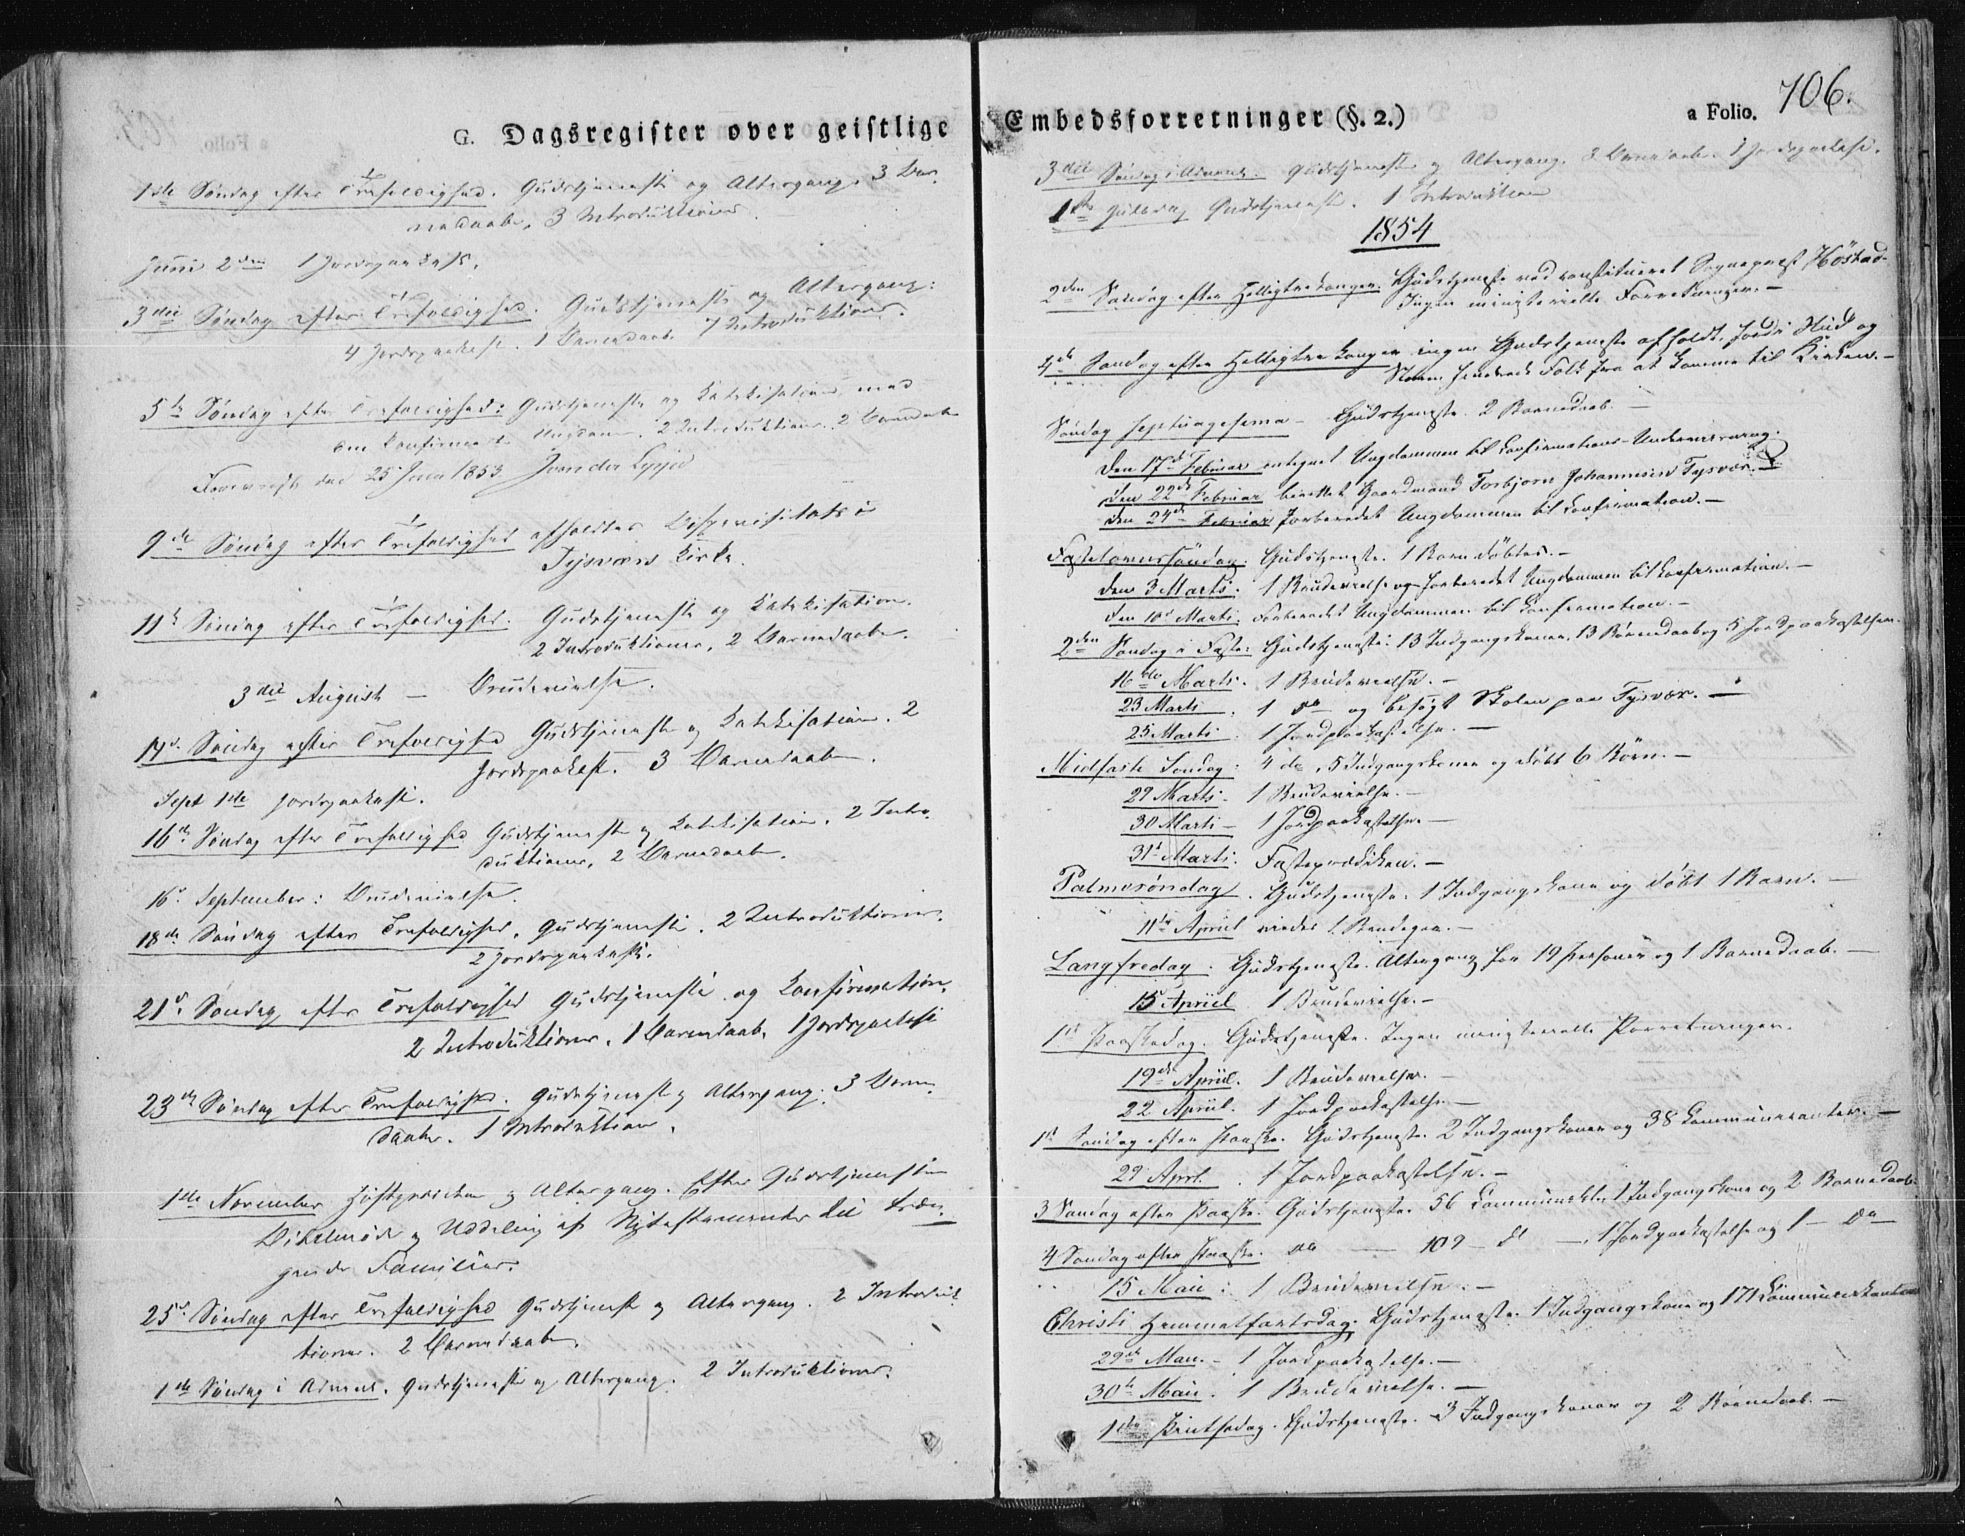 G. Dagsregister over geistlige
1ste Søndag efter Trefoldighed. Gudstjeneste og Altergang. 3 Bar-
nedaab. 3 Introduktioner.
Juni 2den 1 Jordpaakast.
3die Søndag efter Trefoldighed. Gudstjeneste og Altergang:
4 Jordpaakast. 1 Barnedaab. 7 Introduktioner.
5te Søndag efter Trefoldighed: Gudstjeneste og Katekisation med
den konfirmerte Ungdom. 2 Introduktioner. 2 Barnedaab
den 25 Juni 1853
9de Søndag efter Trefoldighed afholdtes Bispevisitats i
Tysvær Kirke.
11te Søndag efter Trefoldighed. Gudstjeneste og Katekisation.
2 Introduktioner, 2 Barnedaab.
3die August — Brudevielse.
14d. Søndag efter Trefoldighed Gudstjeneste og Katekisation. 2
Jordpaakast. 3 Barnedaab.
Sept 1ste Jordpaakast.
16de Søndag efter Trefoldighed Gudstjeneste og Katekisation. 2 Intro-
duktioner, 2 Barnedaab.
16d. September: Brudevielse.
18de Søndag efter Trefoldighed. Gudstjeneste. 2 Introduktioner.
2 Jordpaakast.
21d. Søndag efter Trefoldighed Gudstjeneste og Konfirmation.
2 Introduktioner. 1 Barnedaab. 1 Jordpaakast
23de Søndag efter Trefoldighed. Gudstjeneste og Altergang. 3 Barne-
daab. 1 Introduktion.
1ste November Høstprædiken og Altergang. Efter Gudstjenesten
Bibelmøde og Uddeling af Nytestamenter til træn-
gende Familier.
25d. Søndag efter Trefoldighed Gudstjeneste og Altergang. 2 Introduk-
tioner. 2 Barnedaab.
1ste Søndag i Advent. Gudstjeneste og Altergang. 2 Introduktioner.
Embedsforretninger (§. 2.)
a Folio. 106.
3die Søndag i Advent. Gudstjeneste og Altergang. 3 Barnedaab. 1 Jordpaakast.
1ste Juledag Gudstjeneste. 1 Introduktion
1854
2den Søndag efter Helligtrekonger. Gudstjeneste ved constitueret Sognepræst Höstad-
Ingen ministerielle Forretninger.—
4de Søndag efter Helligtrekonger ingen Gudstjeneste afholdt, fordi Vind og
Storm hindrede Folk fra at komme til Kirken.—
Søndag Septuagesima — Gudstjeneste. 2 Barnedaab.—
Den 17de Februar antegnet Ungdommen til Confirmations-Underviisning.
den 22de Februar Gaardmand Torbjørn Johannesen Tysvær.
den 24de Februar forberedet Ungdommen til Confirmation.—
Fastelavnssøndag. Gudstjeneste. 1 Barn døbtes.—
den 3 Marts. 1 Brudevielse og forberedet Ungdommen til Confirmation.—
den 10d Marts. Forberedet Ungdommen til Confirmation.—
2den Søndag i Faste: Gudstjeneste: 13 Indgangskoner, 13 Barnedaab og 5 Jordpaakastelser.
16de Marts. 1 Brudevielse.—
23 Marts. 1 do og besøgt Skolen paa Tysvær.—
25 Marts. 1 Jordpaakastelse.—
Midfaste Søndag: 4 do, 5 Indgangskoner og døbt 6 Børn.—
29 Marts. 1 Brudevielse.—
30 Marts — 1 Jordpaakastelse.—
31d Marts. Fasteprædiken.—
Palmesøndag. Gudstjeneste. 1 Indgangskone og døbt 1 Barn.—
11te Apriil viedes 1 Brudepar.—
Langfredag. Gudstjeneste. Altergang for 19 Personer og 1 Barnedaab.—
15 Apriil 1 Brudevielse.—
1st Paaskedag. Gudstjeneste. Ingen ministerielle Forretninger.
19de Apriil. 1 Brudevielse.—
22 Apriil. 1 Jordpaakastelse.—
1st Søndag efter Paaske. Gudstjeneste. 2 Indgangskoner og 38 Communicanter.—
29 April. 1 Jordpaakastelse.—
3 Søndag efter Paaske. Gudstjeneste. 56 Communikt. 1 Indgangskone og 2 Barnedaab.
4 Søndag efter Paaske. do — 109 — d — 1 Jordpaakastelse og 1 — do
15 Maii: 1 Brudevielse.—
Christi Himmelfartsdag. Gudstjeneste. 1 Indgangskone og 171 Communikanter
29de Maii.— 1 Jordpaakastelse.—
30te Maii. 1 Brudevielse.—
1ste Pintsedag. Gudstjeneste. 3 Indgangskoner og 2 Barnedaab.—